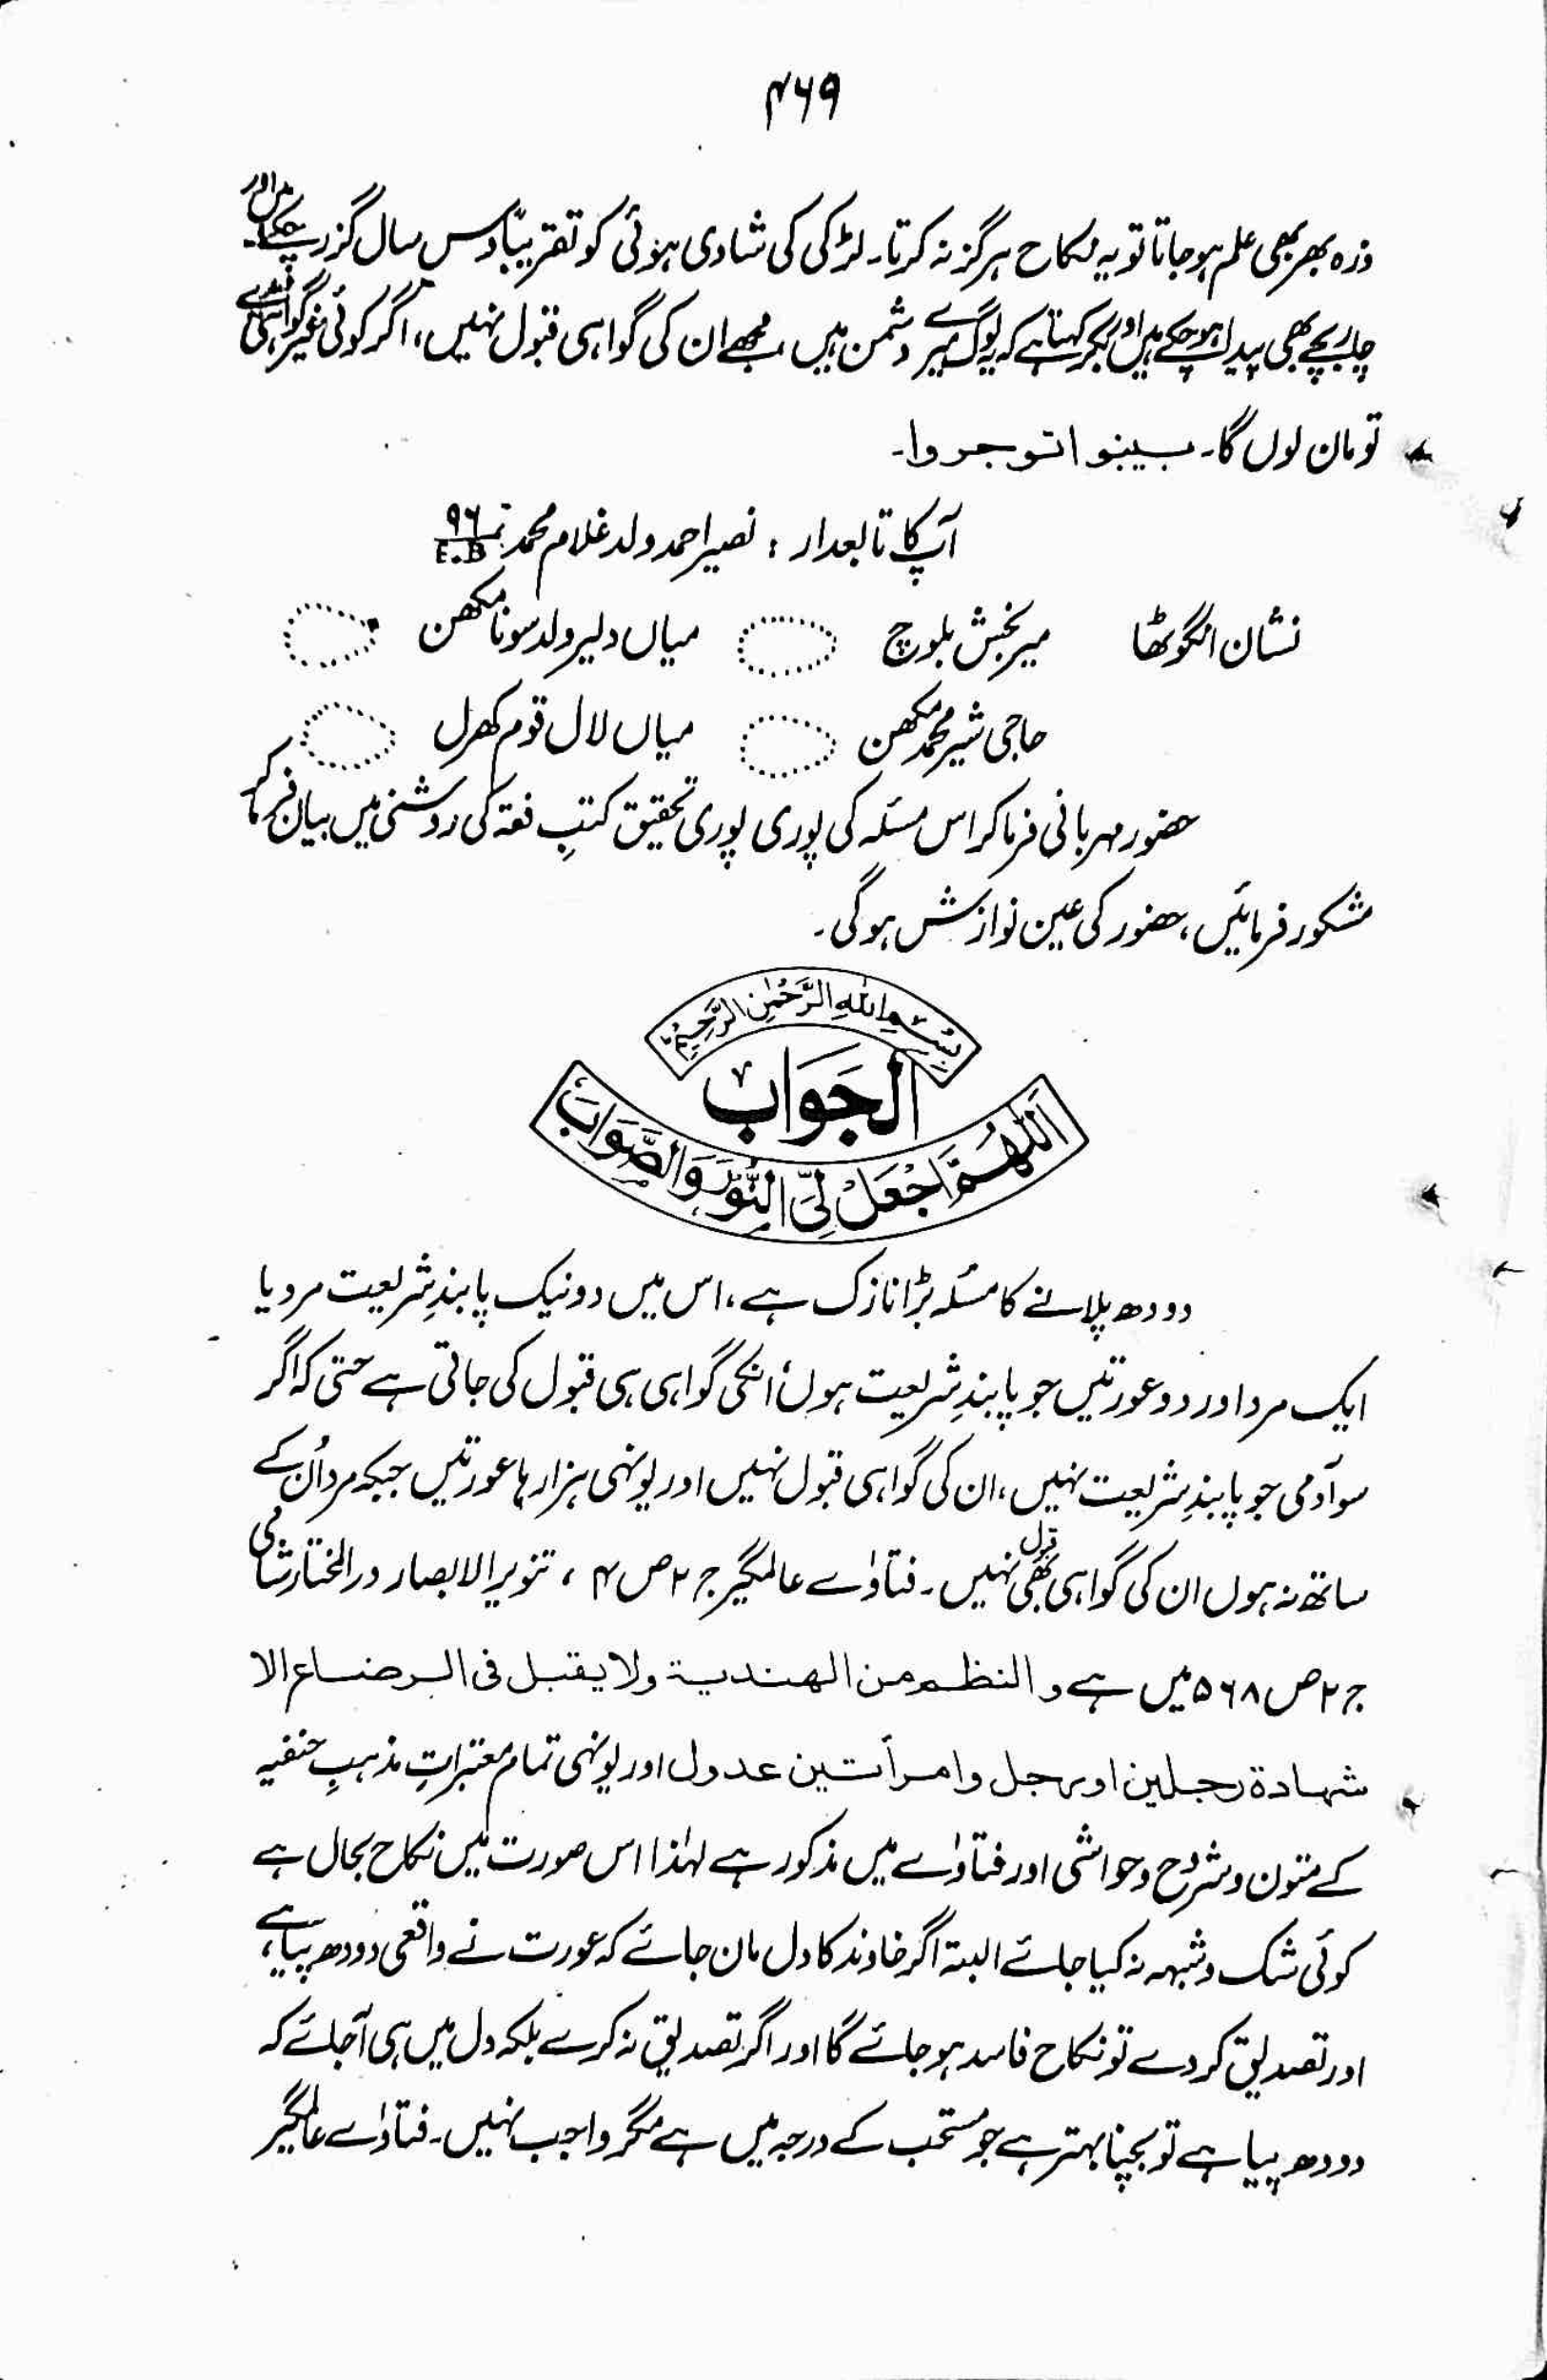 ۴۶۹
ذرہ بھر بھی علم ہو جاتا تو یہ نکاح ہرگز نہ کرتا۔ لڑکی کی شادی ہوئی کو تقریباً دس سال گزر چکے ہیں اور
چار بچے بھی پیدا ہو چکے ہیں اور بکر کہتا ہے کہ یہ لوگ میرے دشمن ہیں، مجھے ان کی گواہی قبول نہیں، اگر کوئی غیر گواہی دے
تو مان لوں گا۔ بینوا توجروا۔
آپ کا تابعدار : نصیر احمد ولد غلام محمد نمبر ۹۶ E.B
نشان انگوٹھا میر بخش بلوچ میاں دلیر ولد سونا مکھن
حاجی شیر محمد مکھن میاں لال قوم کھرل
حضور مہربانی فرما کر اس مسئلہ کی پوری پوری تحقیق کتبِ فقہ کی روشنی میں بیان فرما کر
مشکور فرمائیں، حضور کی عین نوازش ہوگی۔
بِسْمِ اللهِ الرَّحْمٰنِ الرَّحِيْمِ
الجَوَاب
اَللّٰهُمَّ اجْعَلْ لِيَ النُّوْرَ وَالصَّوَابَ
دودھ پلانے کا مسئلہ بڑا نازک ہے، اس میں دو نیک پابندِ شریعت مرد یا
ایک مرد اور دو عورتیں جو پابندِ شریعت ہوں، انکی گواہی ہی قبول کی جاتی ہے حتی کہ اگر
سو آدمی جو پابندِ شریعت نہیں، ان کی گواہی قبول نہیں اور یونہی ہزارہا عورتیں جبکہ مرد اُن کے
ساتھ نہ ہوں ان کی گواہی بھی قبول نہیں۔ فتاوٰے عالمگیر ج ۲ ص ۴ ، تنویر الابصار در المختار شامی
ج ۲ ص ۵۶۸ میں ہے و النظم من الهندية ولا يقبل فى الرضاع الا
شهادة رجلين او رجل وامرأتين عدول اور یونہی تمام معتبراتِ مذہبِ حنفیہ
کے متون و شروح و حواشی اور فتاوٰے میں مذکور ہے لہٰذا اس صورت میں نکاح بحال ہے
کوئی شک و شبہہ نہ کیا جائے البتہ اگر خاوند کا دل مان جائے کہ عورت نے واقعی دودھ پیا ہے،
اور تصدیق کر دے تو نکاح فاسد ہو جائے گا اور اگر تصدیق نہ کرے بلکہ دل میں ہی آجائے کہ
دودھ پیا ہے تو بچنا بہتر ہے جو مستحب کے درجہ میں ہے مگر واجب نہیں۔ فتاوٰے عالمگیر